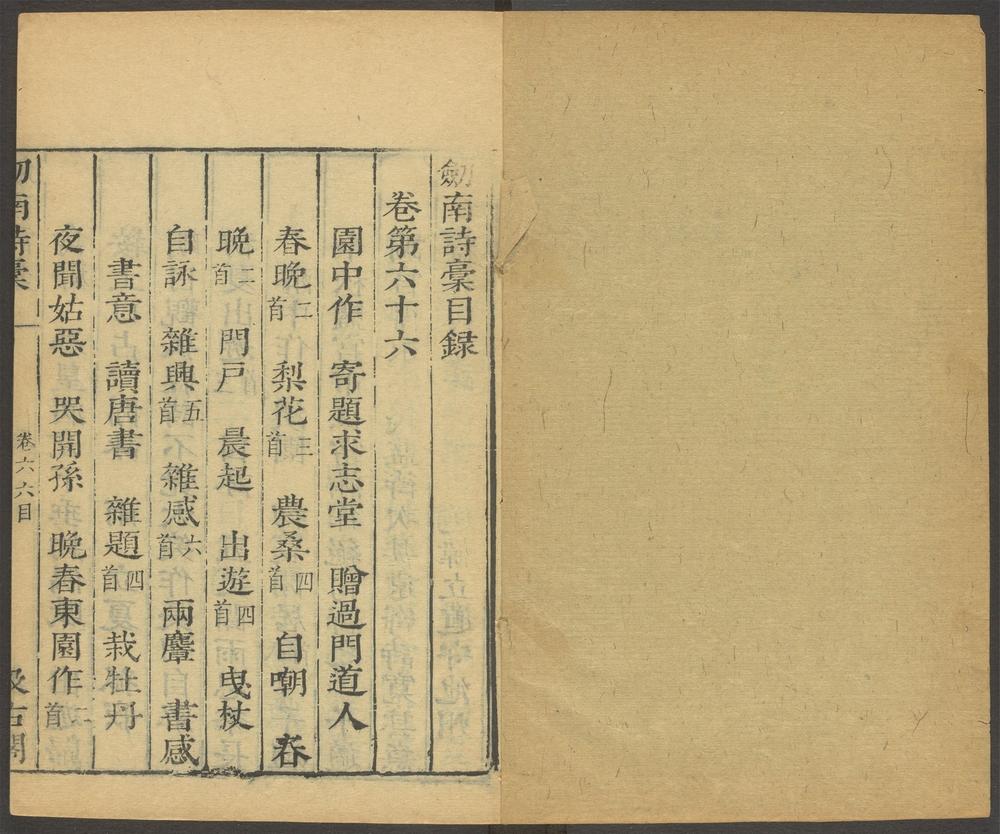 劒南詩稾目録
卷第六十六
園中作　寄題求志堂　贈過門道人
春晚二首　梨花三首　農桑四首　自嘲　春
晚二首　門戸　晨起　出遊四首　曳杖
自詠　雜興五首　雜感六首　兩麞　書感
書意　讀唐書　雜題四首　栽牡丹
夜聞姑惡　哭開孫　晚春東園作
劒南詩稾　卷六六目　汲古閣